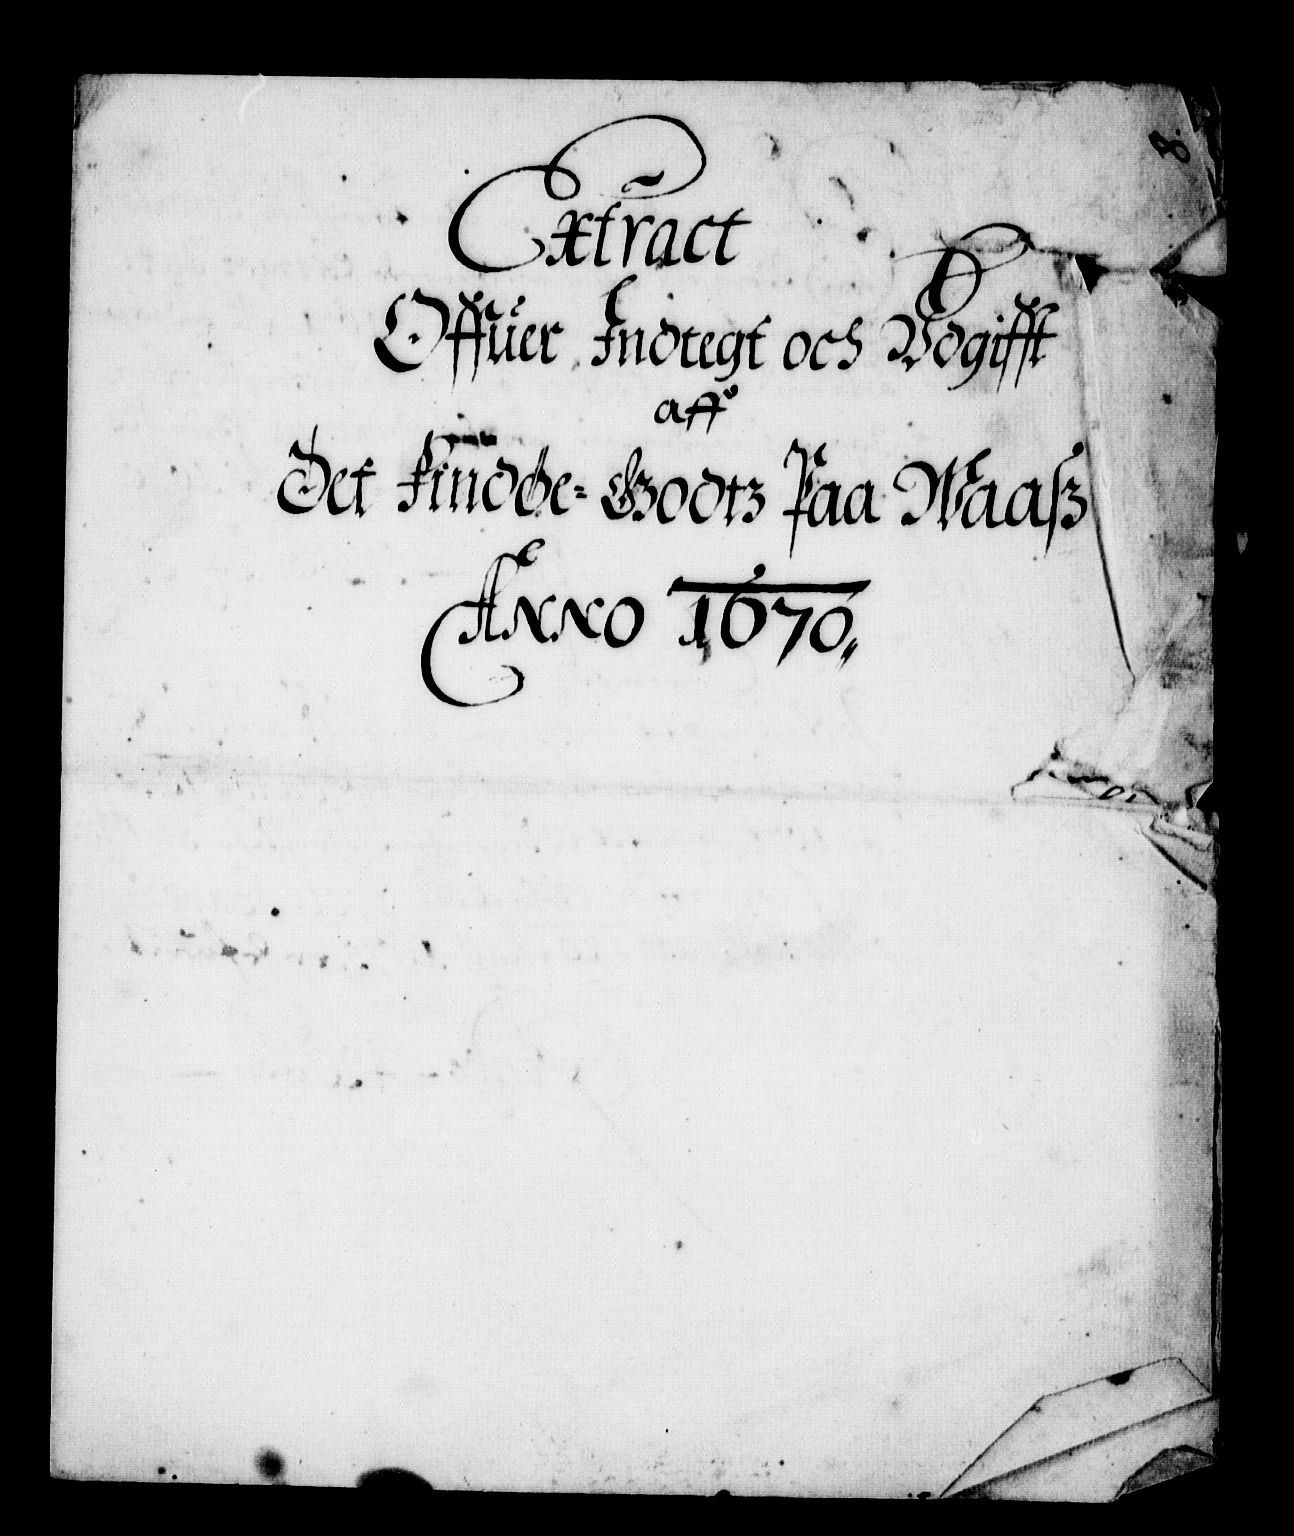 8.
Extract
Offuer Indtegt och Vdgifft
aff
Det Findde=Godtz Paa Waaß
Anno 1670